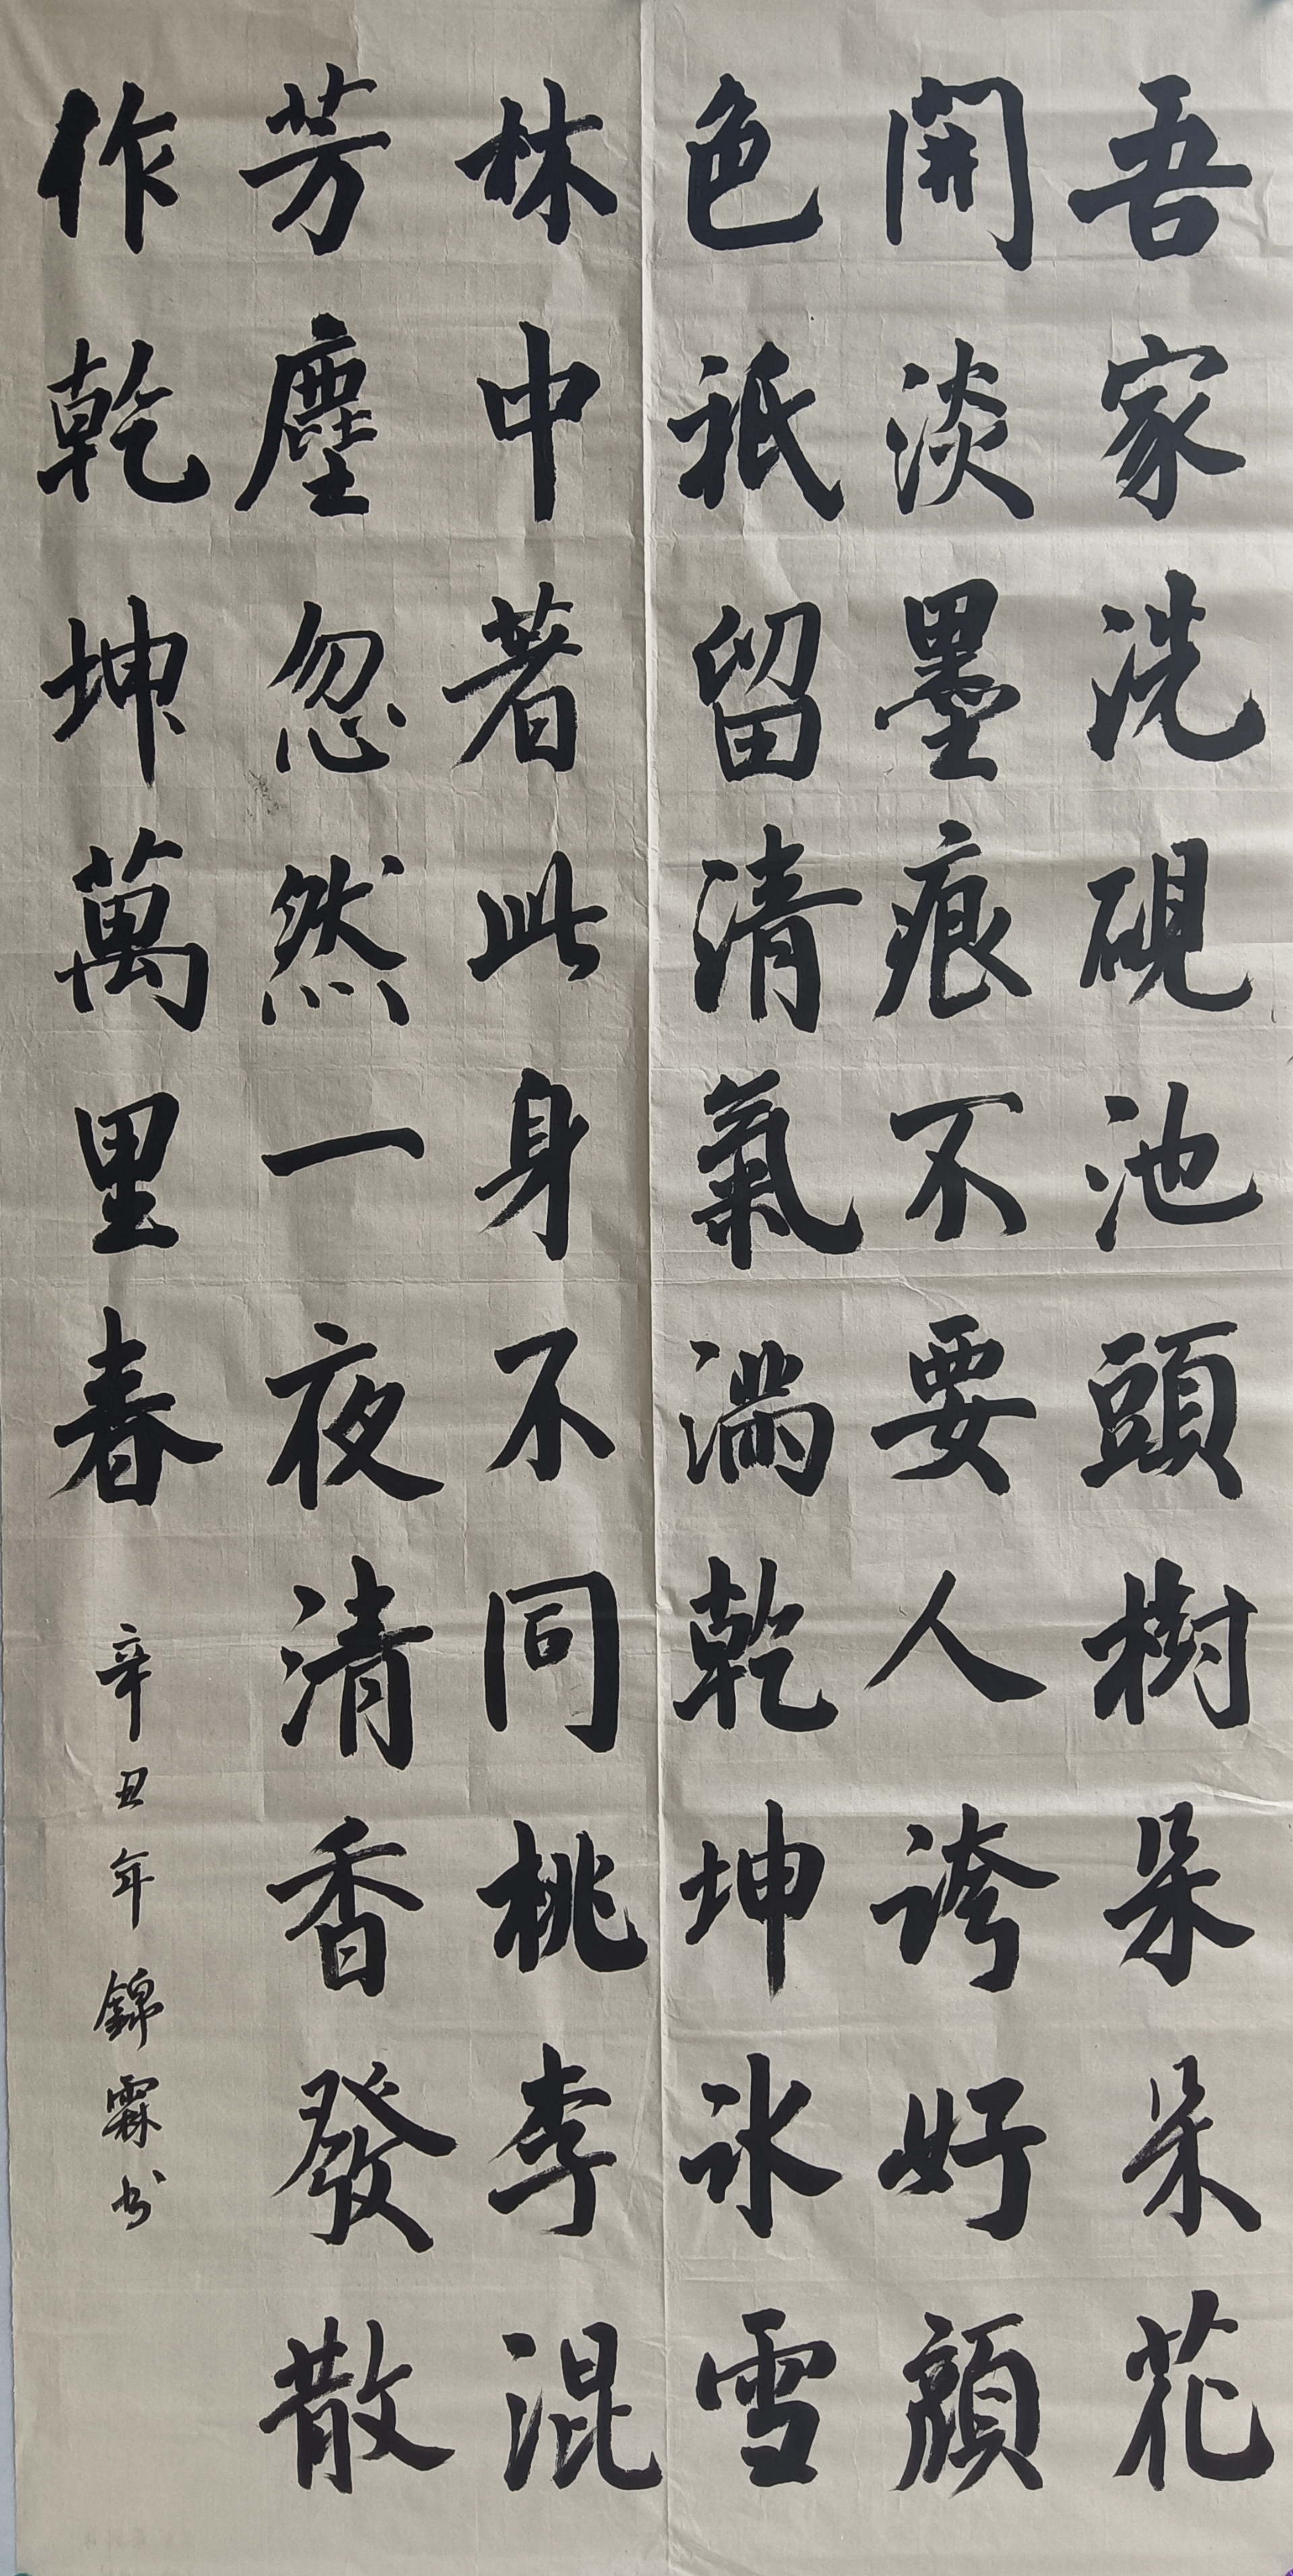 吾家洗硯池頭樹朵朵花
開淡墨痕不要人誇好顔
色祇留清氣滿乾坤冰雪
林中著此身不同桃李混
芳塵忽然一夜清香發散
作乾坤萬里春
辛丑年錦霖书